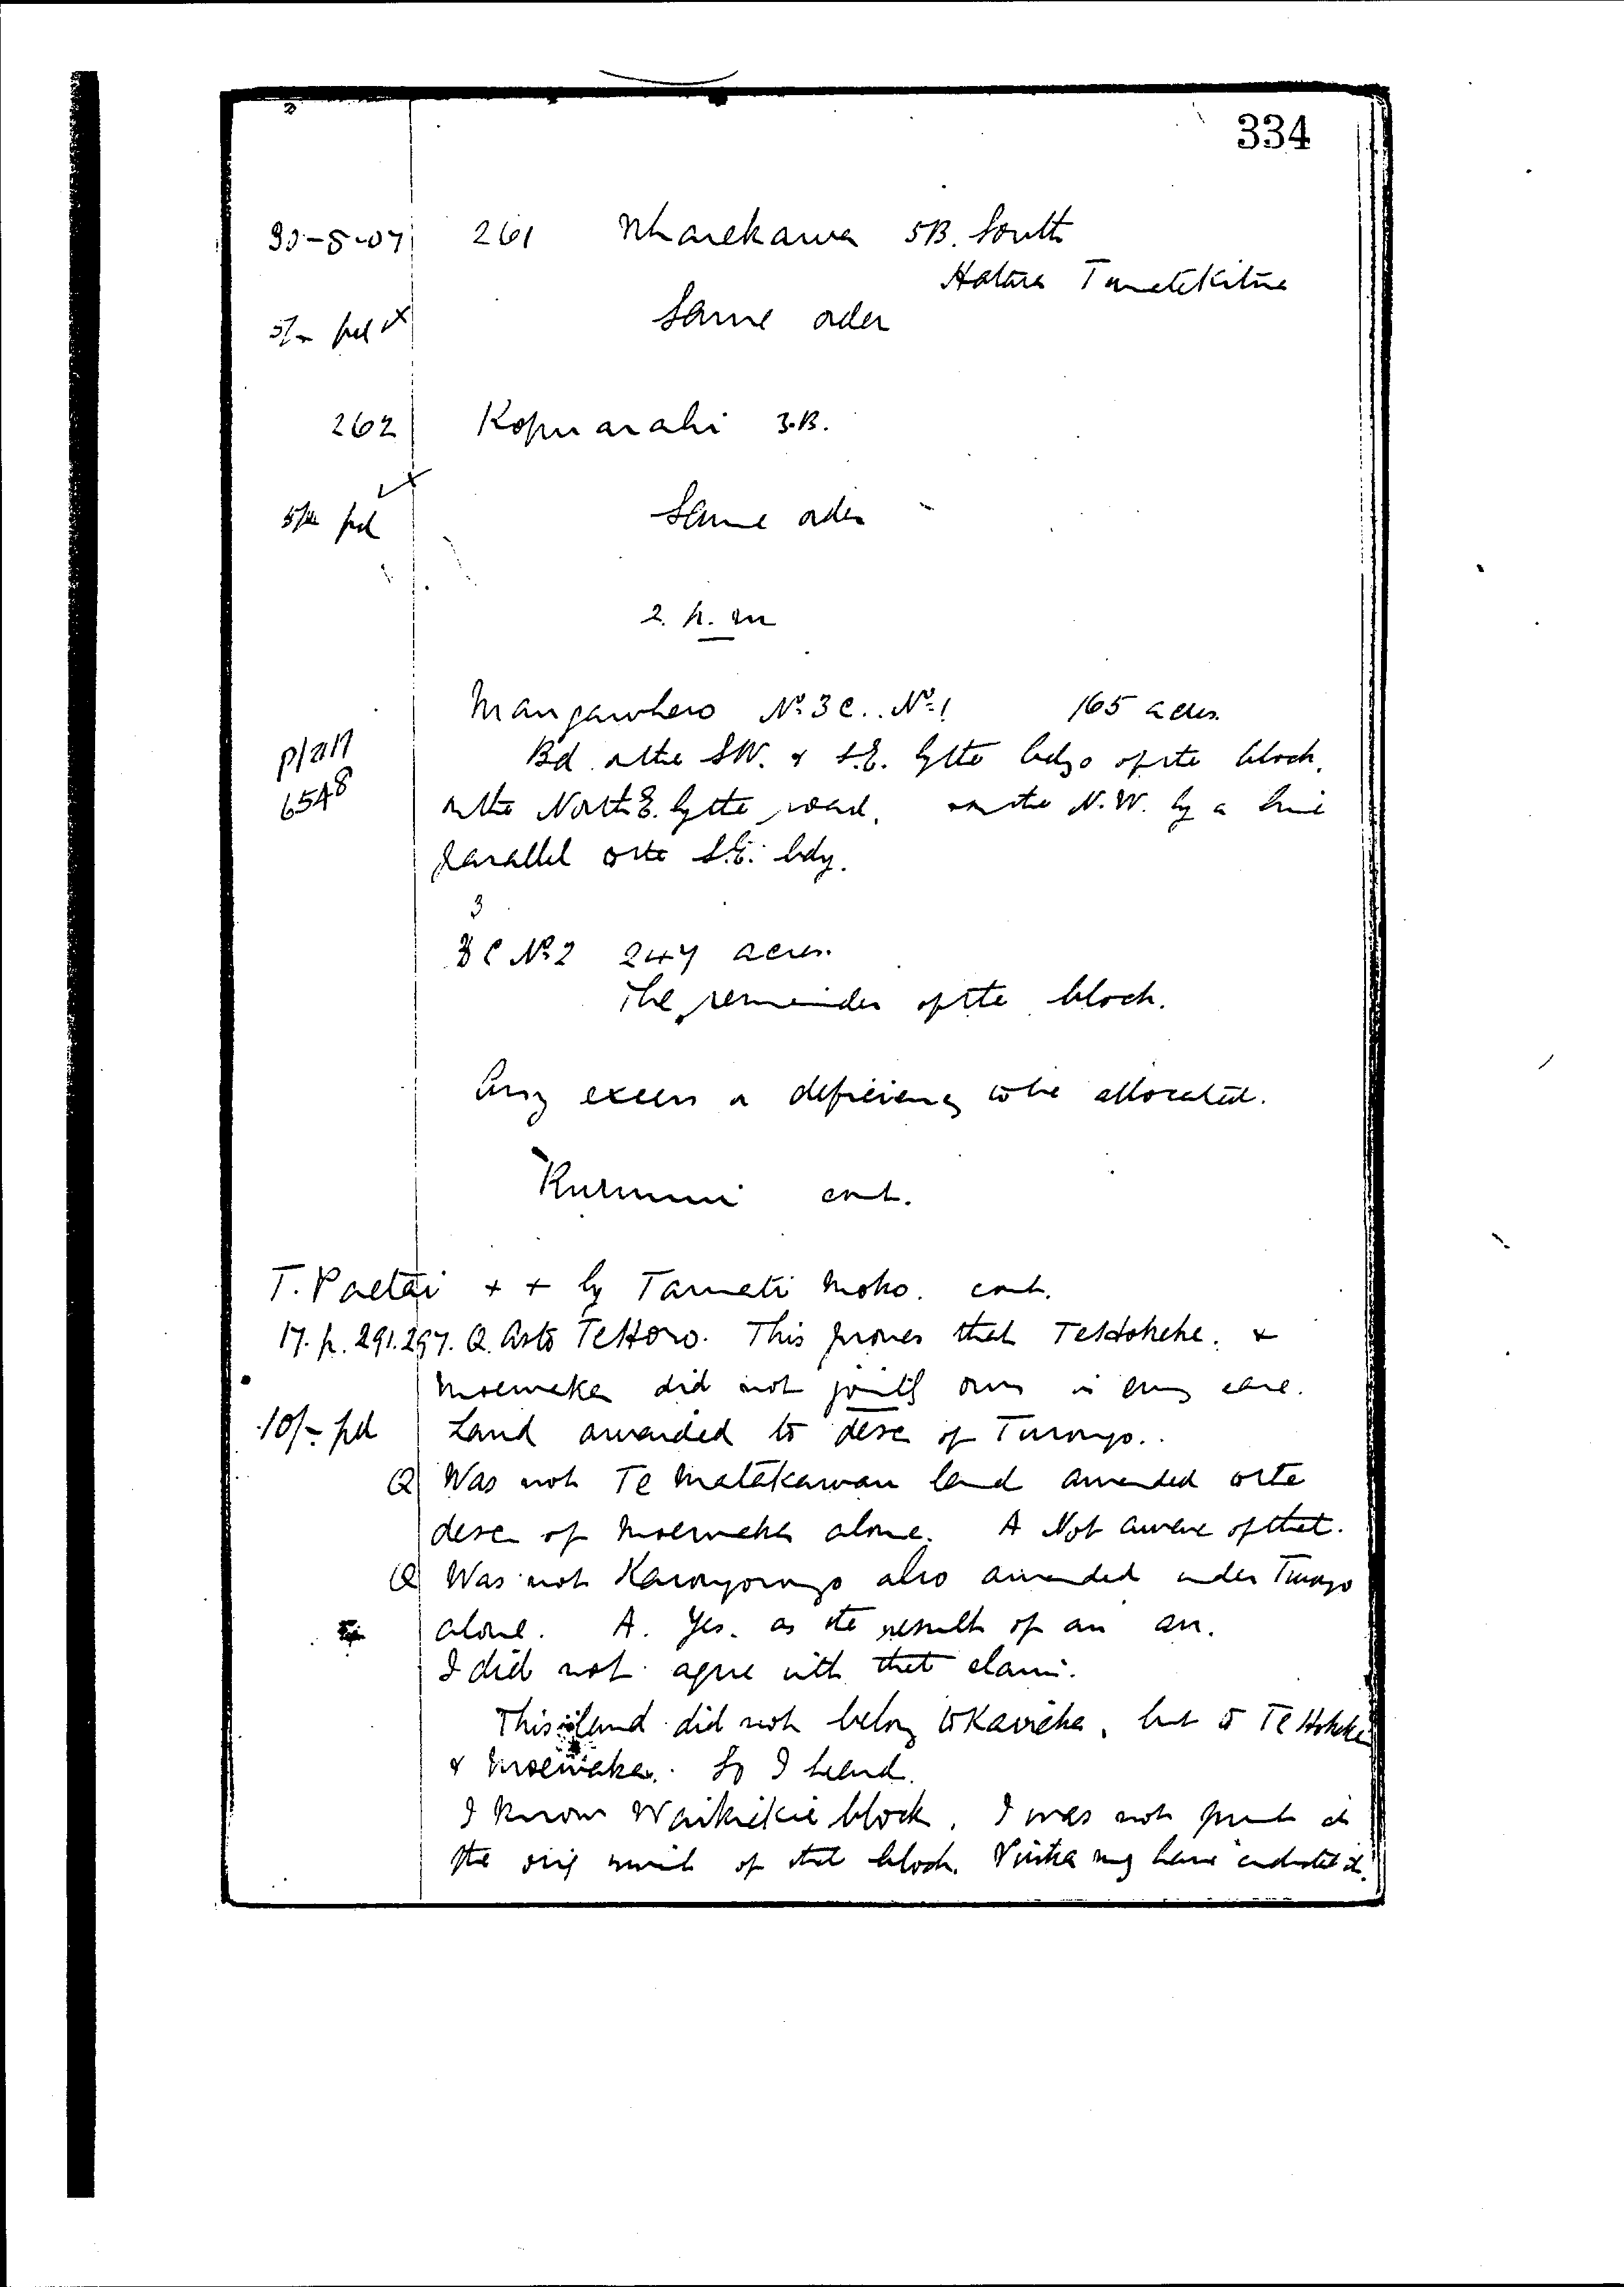 334
30-5-07 261 Wharekawa 5B. South
Hatara Tametekitua
5/- pd Same order
262 Kopuarahi 3.B.
5/- pd Same order
2. p. m
Mangawhero No 3C.. No 1 165 acres.
plan Bd. on the SW. & S.E. by the bdys of the block.
6548 on the North E. by the road. on the N.W. by a line
parallel to the S.E. bdy.
3
C No 2 247 acres.
The remainder of the block.
Any excess or deficiency to be allocated.
cont.
T. Paetai + + by Tameti Moko. cont.
17. p. 291.297. Q. As to Te Horo. This proves that Te Hokeke. &
Moeweka did not jointly own in every case.
10/- pd Land awarded to desc of Turongo..
Q Was not Te Matakawau land awarded to the
desc of Moeweka alone. A Not aware of that.
Q Was not Karongorongo also awarded under Turongo
alone. A. Yes. as the result of an arr.
I did not agree with that claim.
This land did not belong to Kawheke, but to Te Hokeke
& Moeweka. So I heard.
I know Waikiekie block. I was not present at
the orig of that block. may have conducted it.